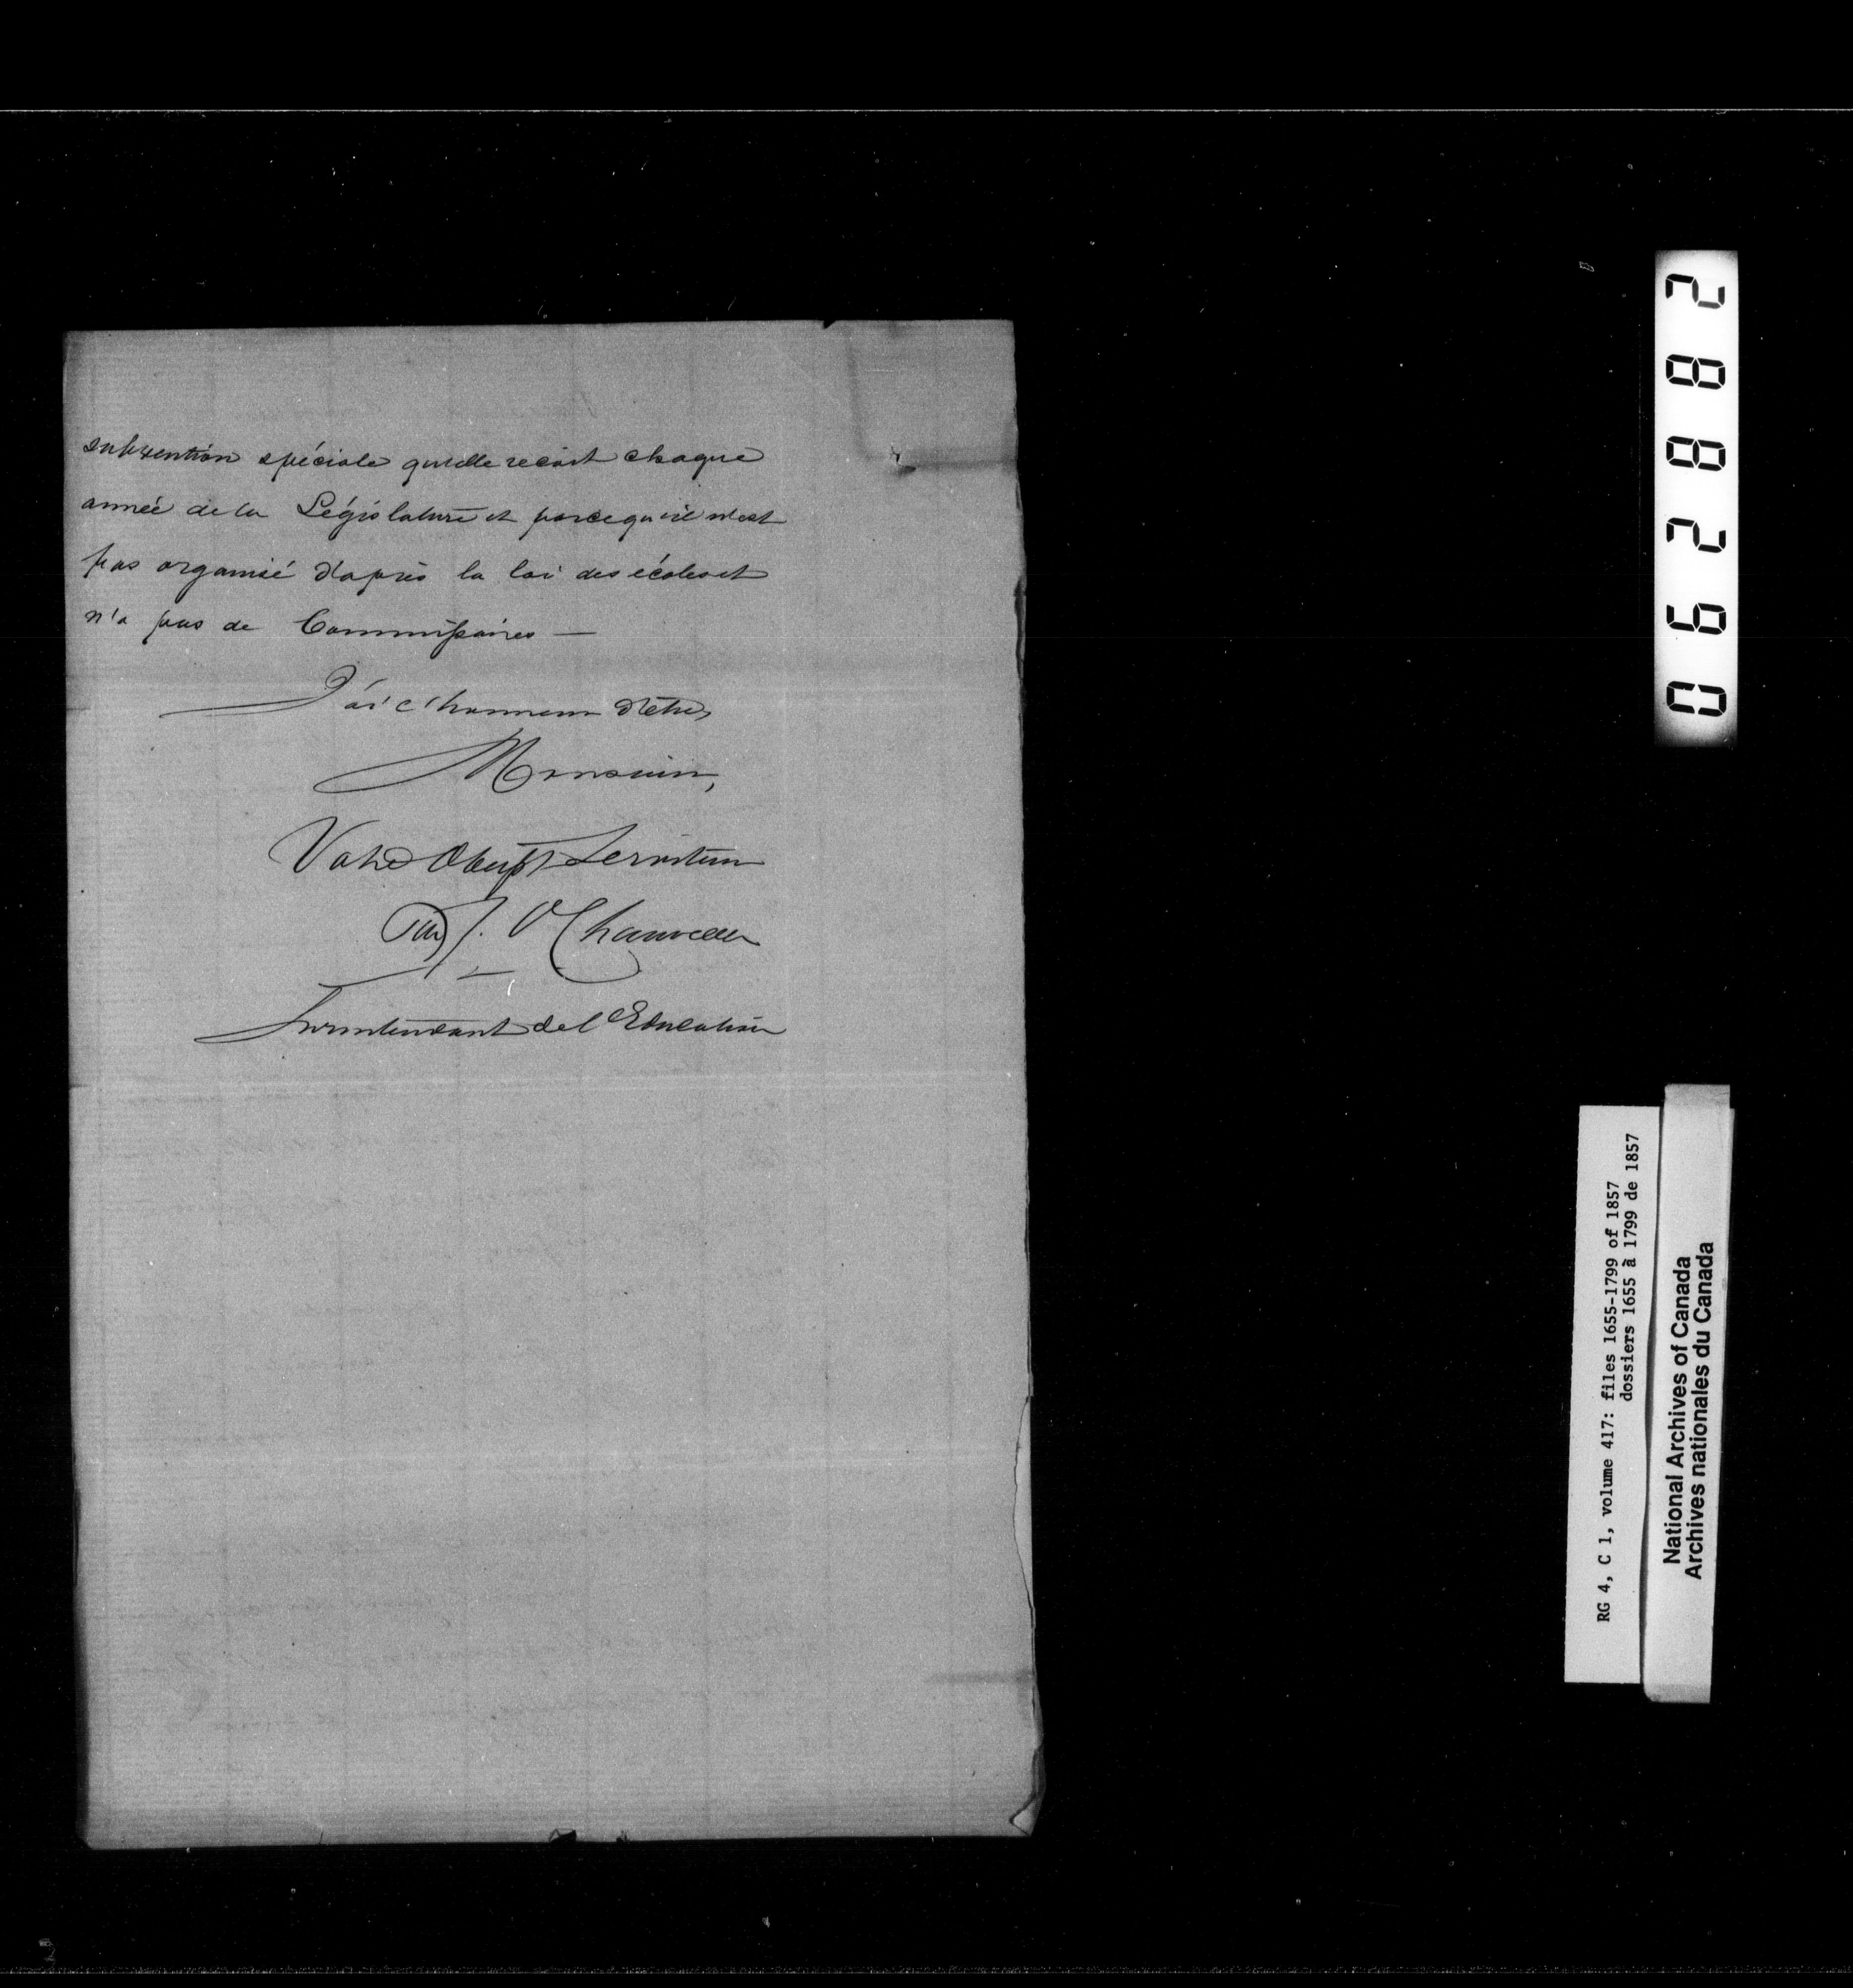 subvention spéciale qu'elle reçoit chaque
année de la Législature et parcequ'il n'est
pas organisé d'après la loi des écoles et
n'a pas de Commissaires —
J'ai l'honneur d'être,
Monsieur,
Votre Obeisst Serviteur
J. O Chauveau
Surintendant de l'Education
082890
RG 4, C 1, volume 417: files 1655-1799 of 1857
dossiers 1655 à 1799 de 1857
National Archives of Canada
Archives nationales du Canada